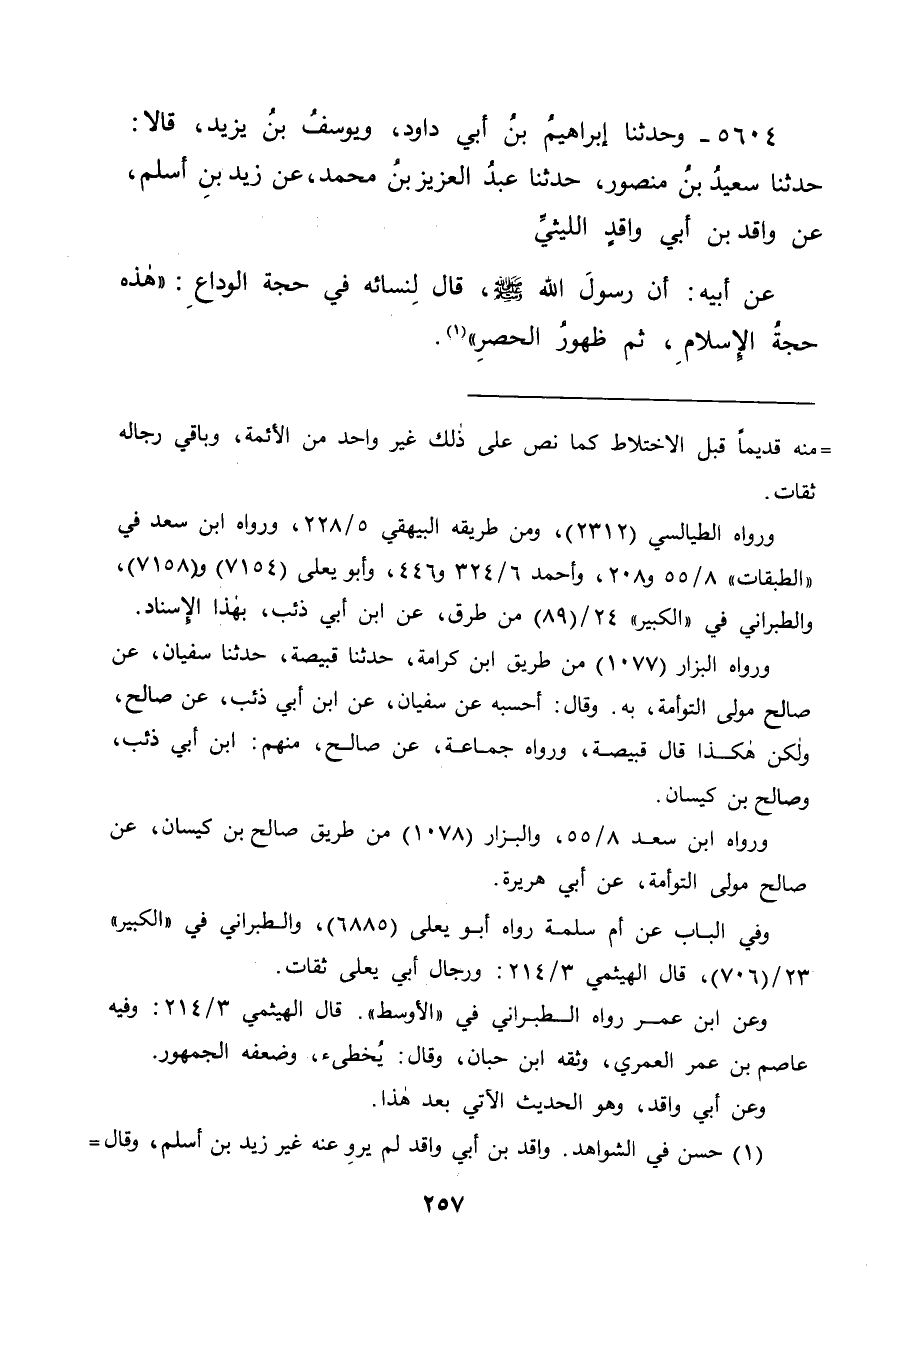 ٥٦٠٤ ـ وحدثنا إبراهيمُ بنُ أبي داود، ويوسفُ بنُ يزيد، قالا:
حدثنا سعيدُ بنُ منصور، حدثنا عبدُ العزيز بنُ محمد، عن زيد بنِ أسلم،
عن واقد بن أبي واقدٍ الليثيِّ
عن أبيه: أن رسولَ الله ﷺ، قال لِنسائه في حجة الوداعِ: «هٰذه
حجةُ الإِسلامِ، ثم ظهورُ الحصرِ»(١).
= منه قديماً قبل الاختلاط كما نص على ذٰلك غير واحد من الأئمة، وباقي رجاله
ثقات.
ورواه الطيالسي (٢٣١٢)، ومن طريقه البيهقي ٢٢٨/٥، ورواه ابن سعد في
«الطبقات» ٥٥/٨ و٢٠٨، وأحمد ٣٢٤/٦ و٤٤٦، وأبو يعلى (٧١٥٤) و(٧١٥٨)،
والطبراني في «الكبير» ٢٤/(٨٩) من طرق، عن ابن أبي ذئب، بهٰذا الإِسناد.
ورواه البزار (١٠٧٧) من طريق ابن كرامة، حدثنا قبيصة، حدثنا سفيان، عن
صالح مولى التوأمة، به. وقال: أحسبه عن سفيان، عن ابن أبي ذئب، عن صالح،
ولٰكن هٰكذا قال قبيصة، ورواه جماعة، عن صالح، منهم: ابن أبي ذئب،
وصالح بن كيسان.
ورواه ابن سعد ٥٥/٨، والبزار (١٠٧٨) من طريق صالح بن كيسان، عن
صالح مولى التوأمة، عن أبي هريرة.
وفي الباب عن أم سلمة رواه أبو يعلى (٦٨٨٥)، والطبراني في «الكبير»
٢٣/(٧٠٦)، قال الهيثمي ٢١٤/٣: ورجال أبي يعلى ثقات.
وعن ابن عمر رواه الطبراني في «الأوسط». قال الهيثمي ٢١٤/٣: وفيه
عاصم بن عمر العمري، وثقه ابن حبان، وقال: يُخطىء، وضعفه الجمهور.
وعن أبي واقد، وهو الحديث الآتي بعد هٰذا.
(١) حسن في الشواهد. واقد بن أبي واقد لم يروِ عنه غير زيد بن أسلم، وقال =
٢٥٧